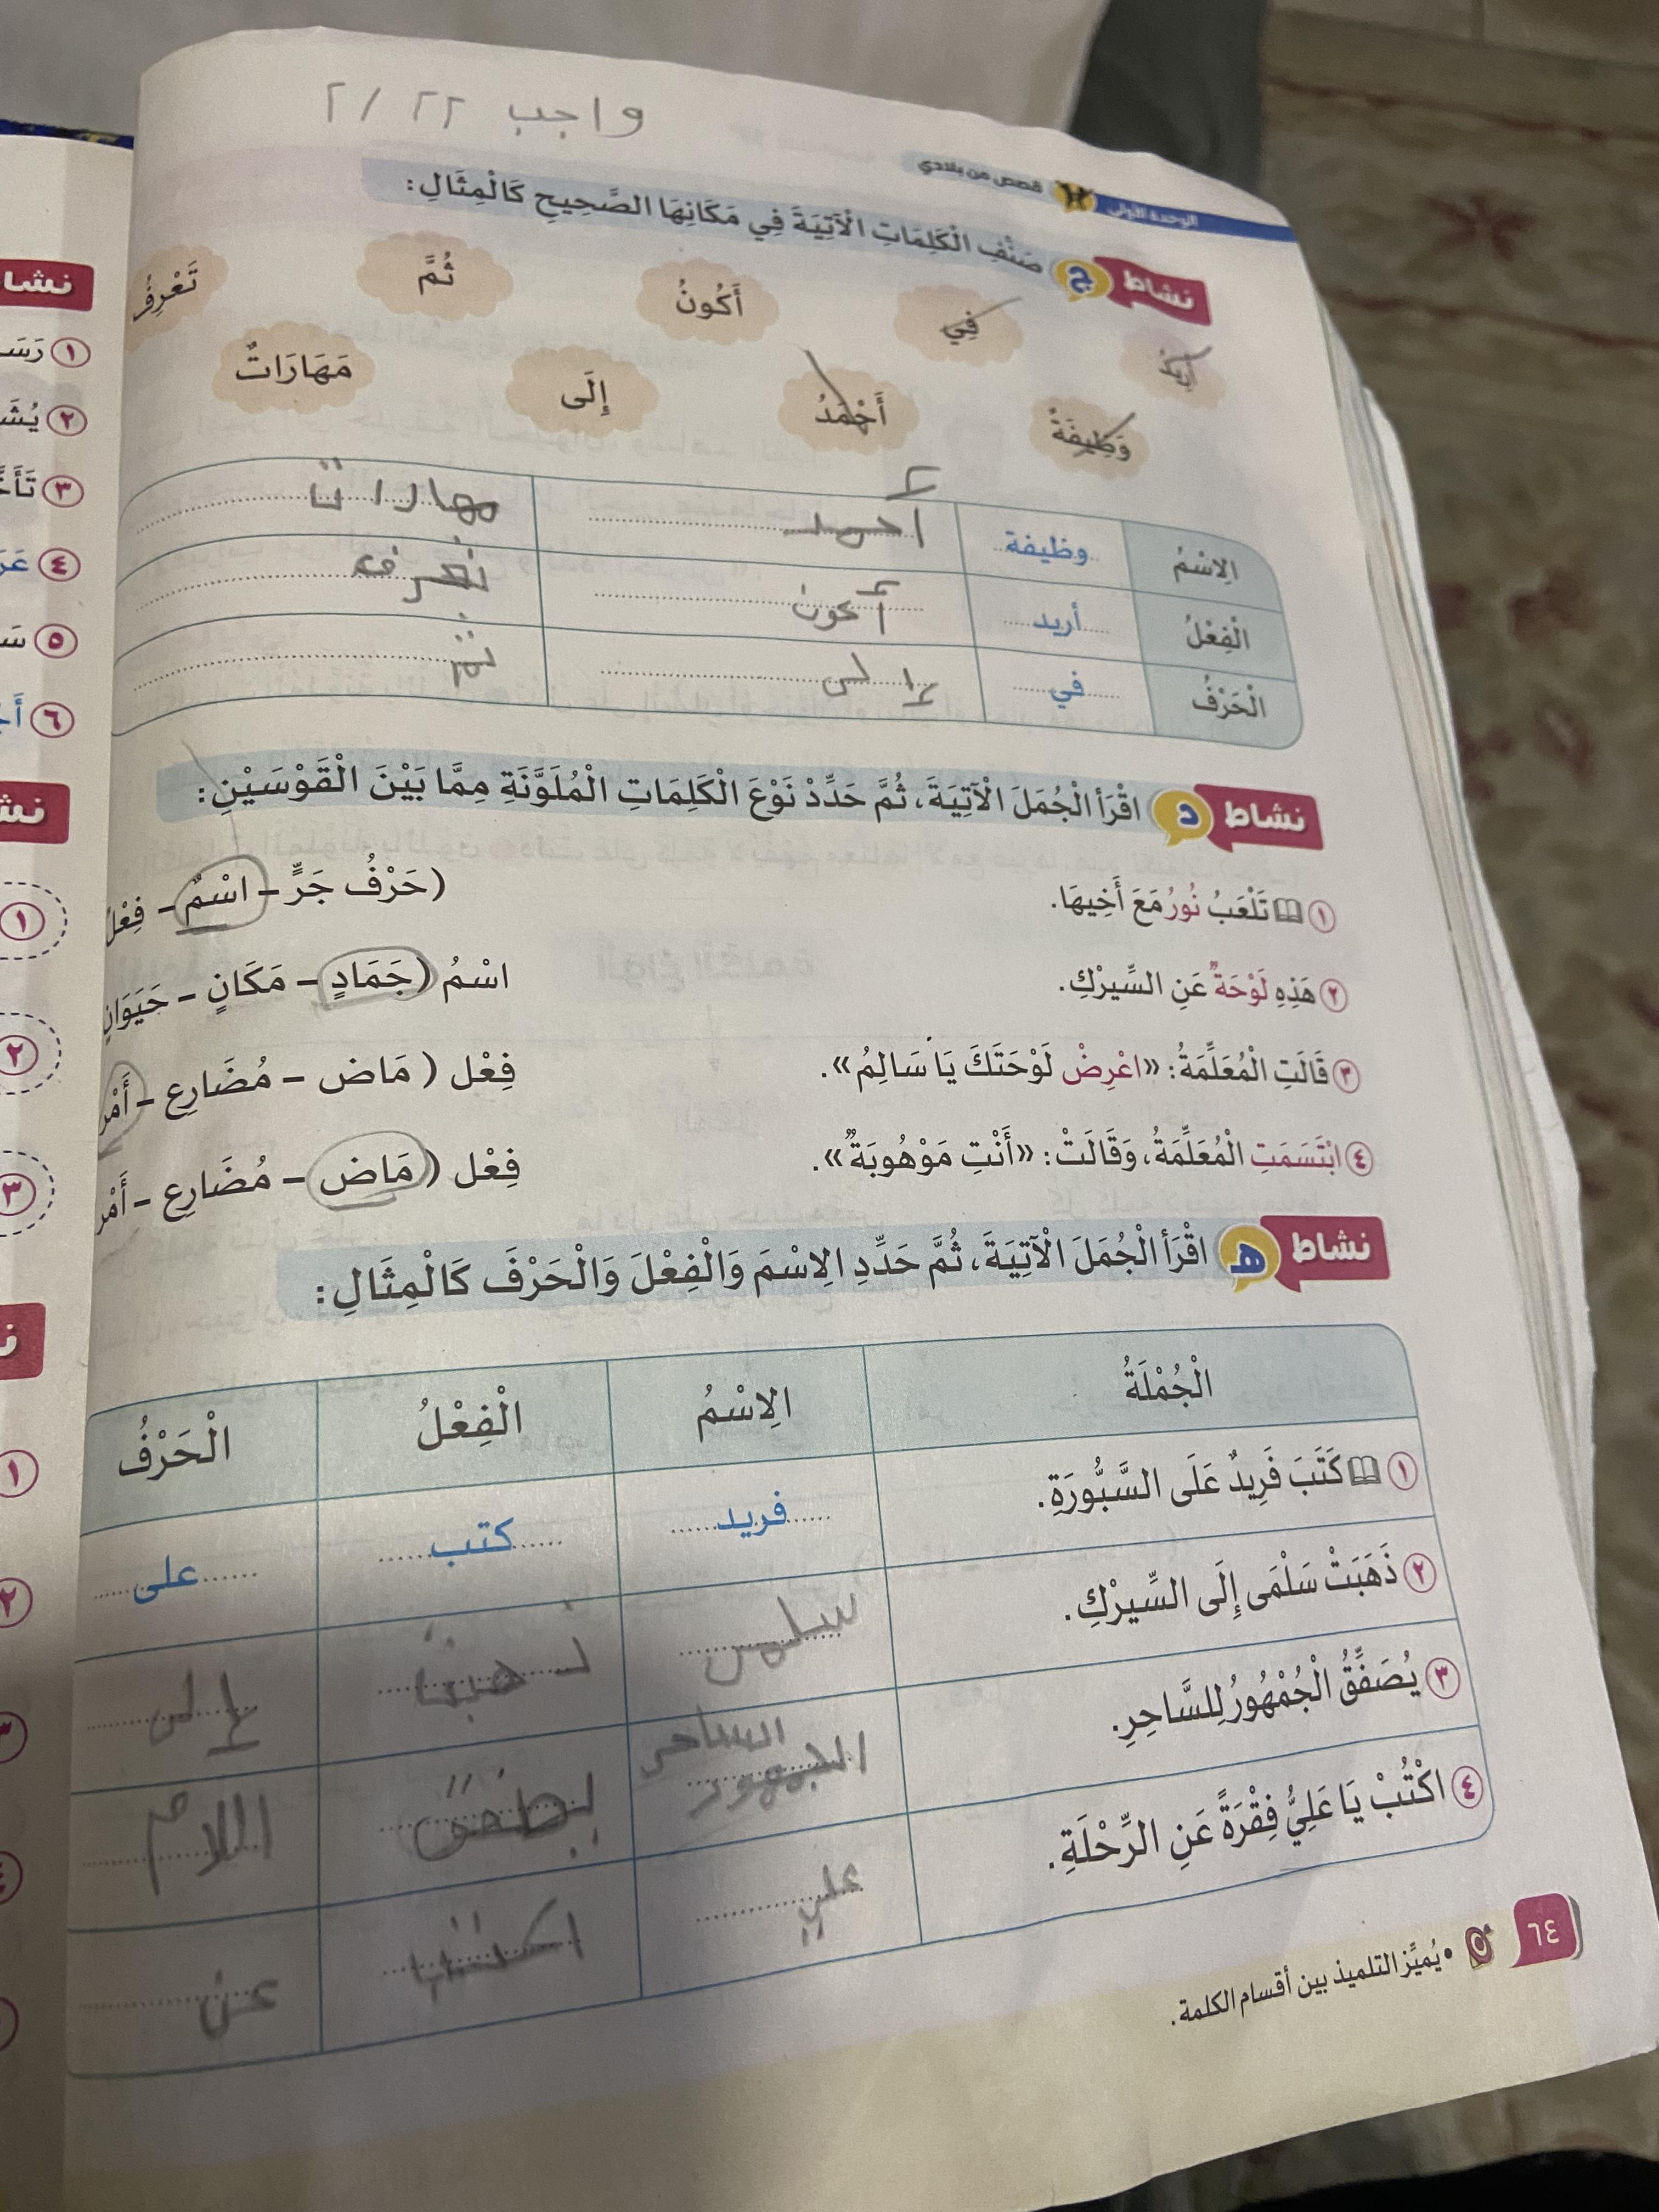 واجب ٢٢ /٢
الوحدة الأولى قصص من بلادي
نشاط ج صَنِّفِ الْكَلِمَاتِ الْآتِيَةَ فِي مَكَانِهَا الصَّحِيحِ كَالْمِثَالِ:
أُرِيدُ فِي أَكُونُ ثُمَّ تَعْرِفُ
وَظِيفَةٌ أَحْمَدُ إِلَى مَهَارَاتٌ
الِاسْمُ وظيفة أحمد مهارات
الْفِعْلُ أريد أكون تعرف
الْحَرْفُ في إلى ثم
نشاط د اقْرَأِ الْجُمَلَ الْآتِيَةَ، ثُمَّ حَدِّدْ نَوْعَ الْكَلِمَاتِ الْمُلَوَّنَةِ مِمَّا بَيْنَ الْقَوْسَيْنِ:
١ تَلْعَبُ نُورُ مَعَ أَخِيهَا. (حَرْفُ جَرٍّ – اسْمٌ – فِعْلٌ
٢ هَذِهِ لَوْحَةٌ عَنِ السِّيرْكِ. اسْمُ (جَمَادٍ – مَكَانٍ – حَيَوَانٍ
٣ قَالَتِ الْمُعَلِّمَةُ: «اعْرِضْ لَوْحَتَكَ يَا سَالِمُ». فِعْل ( مَاض – مُضَارِع – أَمْر
٤ ابْتَسَمَتِ الْمُعَلِّمَةُ، وَقَالَتْ: «أَنْتِ مَوْهُوبَةٌ». فِعْل (مَاض – مُضَارِع – أَمْر
نشاط هـ اقْرَأِ الْجُمَلَ الْآتِيَةَ، ثُمَّ حَدِّدِ الِاسْمَ وَالْفِعْلَ وَالْحَرْفَ كَالْمِثَالِ:
الْجُمْلَةُ الِاسْمُ الْفِعْلُ الْحَرْفُ
١ كَتَبَ فَرِيدٌ عَلَى السَّبُّورَةِ. فريد كتب على
٢ ذَهَبَتْ سَلْمَى إِلَى السِّيرْكِ. سلمى ذهبت إلى
٣ يُصَفِّقُ الْجُمْهُورُ لِلسَّاحِرِ. الساحر الجمهور يصفق اللام
٤ اكْتُبْ يَا عَلِيُّ فِقْرَةً عَنِ الرِّحْلَةِ. علي اكتب عن
٦٤ • يُميِّز التلميذ بين أقسام الكلمة.
نشا
١ رَسَـ
٢ يُشَـ
٣ تَأَخَّـ
٤ عَرَ
٥ سَـ
٦ أَجـ
نشـ
١
٢
٣
نـ
١
٢
٣
٤